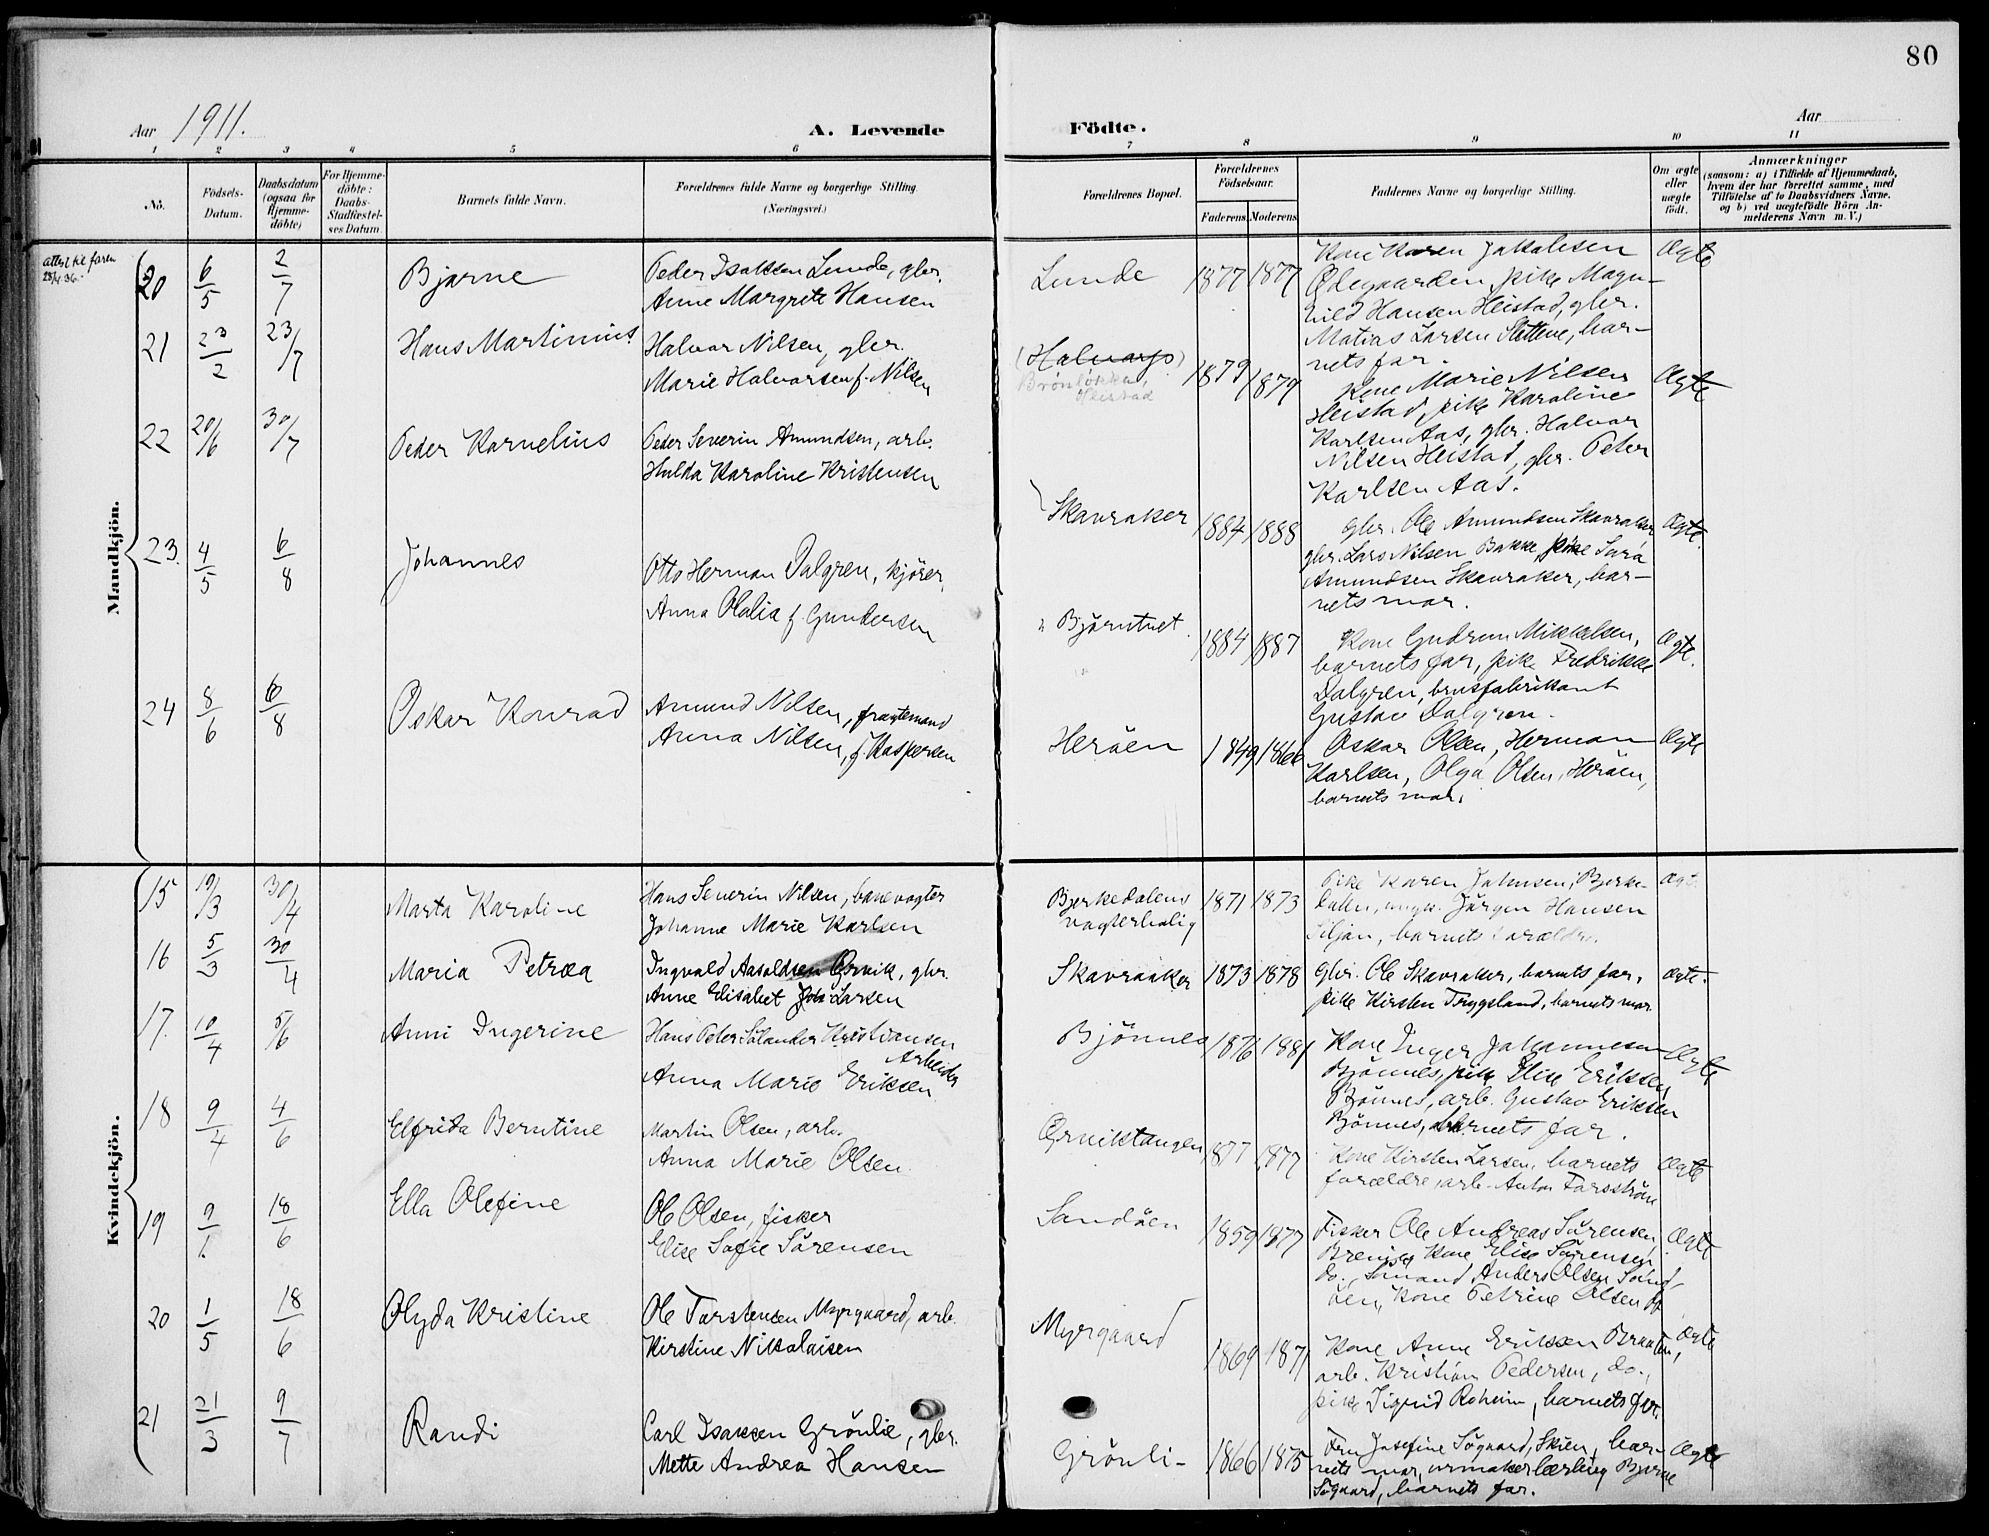 80
Aar 1911.
A. Levende
Födte.
Aar
1 2 3 4 5 6
7 8 9 10 11
No.
Födsels-
Datum.
Daabsdatum
(ogsaa for
Hjemme-
döbte)
For Hjemme-
döbte:
Daabs-
Stadfæstel-
ses Datum.
Barnets fulde Navn.
Forældrenes fulde Navne og borgerlige Stilling.
(Næringsvei.)
Forældrenes Bopæl.
Forældrenes
Födselsaar.
Faderens Moderens
Faddernes Navne og borgerlige Stilling.
Om ægte
eller
uægte
födt.
Anmærkninger
(saasom: a) i Tilfælde af Hjemmedaab,
hvem der har forrettet samme, med
Tilföielse af to Daabsvidners Navne.
og b) ved uægtefödte Börn An-
melderens Navn m. V.)
Mandkjön.
attest til faren
20 6/5 2/7 Bjarne
Peder Isaksen Lunde, gbr.
Anne Margrete Hansen
Lunde 1877 1877
Kone Karen Jakobsen
Ødegaarden, pike Magn-
hild Hansen Heistad, gbr.
Matias Larsen Slettene, bar-
nets far.
Ægte
21 23/2 23/7 Hans Martinius
Halvor Nilsen, gbr.
Marie Halvorsen f. Nilsen
Heistad
1879 1879
Kone Marie Nilsen
Heistad, pike Karoline
Karlsen Aas, gbr. Halvor
Nilsen Heistad, gbr. Peter
Karlsen Aas.
Ægte
22 20/6 30/7 Peder Kornelius
Peder Severin Amundsen, arb.
Hulda Karoline Kristensen
Skavraker 1884 1888
gbr. Ole Amundsen Skavraker
gbr. Lars Nilsen Bakke, pike Sara
Amundsen Skavraker, bar-
nets mor.
Ægte.
23. 4/5 6/8 Johannes
Otto Herman Dalgren, kjörer,
Anna Olalia f. Gundersen
Björntvet. 1884 1887
Kone Gudrun Mikkelsen,
barnets far, pike Fredrikke
Dalgren, brusfabrikant
Gustav Dalgren.
Ægte.
24 8/6 6/8 Oskar Konrad
Amund Nilsen, fragtemand
Anna Nilsen, f. Kaspersen
Heröen 1849 1866
Oskar Olsen, Herman
Karlsen, Olga Olsen, Heröen,
barnets mor.
Ægte
Kvindekjön.
15 19/3 30/4 Marta Karoline
Hans Severin Nilsen, banevogter
Johanne Marie Karlsen
Bjerkedalens
vogterbolig
1871 1873
Pike Karen Johnsen, Bjerke-
dalen, ungk. Jörgen Hansen
Siljan, barnets forældre.
Ægt.
16 5/3 30/4 Maria Petrea
Ingvald Aasoldsen Ørvik, gbr.
Anne Elisabet Larsen
Skavraaker 1873 1878
Gbr. Ole Skavraker, barnets far,
pike Kirsten Trygsland, barnets mor
ægte.
17. 10/4 5/6 Anni Ingerine
Hans Peter Kristiansen
Arbeider
Anna Marie Eriksen
Bjönnes 1876 1881
Kone Inger Johannesen
Bjönnes, pike Elise Eriksen
Bjönnes, arb. Gustav Eriksen
Bjönnes, barnets far.
Ægte
18 9/4 4/6 Elfrida Berntine
Martin Olsen, arb.
Anna Marie Olsen
Ørviktangen 1877 1877
Kone Kirsten Larsen, barnets
forældre, arb. Anton
Ægte
19 18/6 Ella Olefine
Ole Olsen, fisker
Elise Sofie Sörensen
Sandöen 1859 1877
Fisker Ole Andreas Sörensen,
kone Elise Sörensen
do., Anders Olsen Sand-
öen, kone Petrine Olsen
Ægte
20 1/5 18/6 Olyda Kristine
Ole Torstensen Myrgaard, arb.
Kirstine Nikolaisen
Myrgaard 1869 1871
Kone Anne Eriksen Braaten,
arb. Kristian Pedersen, do.,
pike Sigrid Roheim, barnets far.
ægte
21 21/3 9/7 Randi
Carl Isaksen Grönlie, gbr.
Mette Andrea Hansen
Grönli- 1866 1875
Fru Josefine Sögaard, Skien, bar-
nets mor, urmakerlærling Bjarne
Sögaard, barnets far.
Ægte